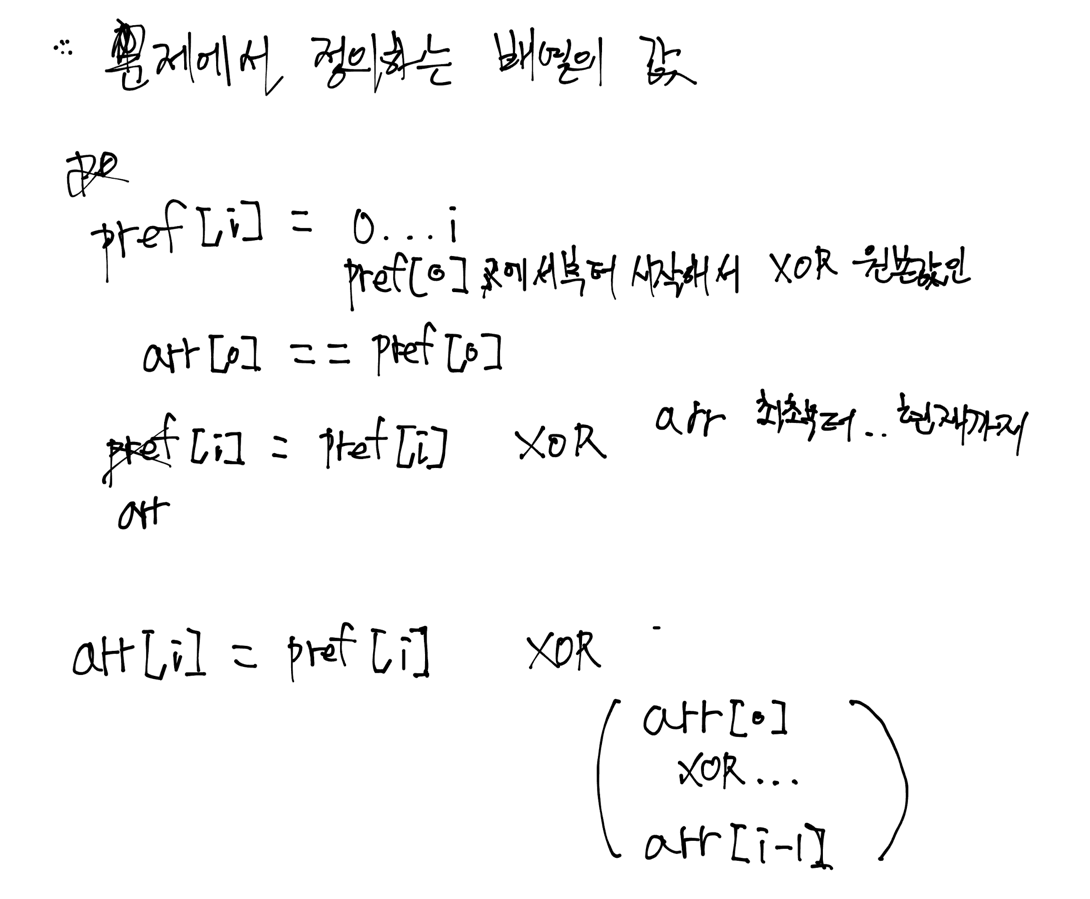 문제에서 정의하는 배열의 값
pref[i] = 0...i
pref[0] 에서부터 시작해서 XOR 원본값인
arr[0] == pref[0]
arr 최초부터..현재까지
pref[i] = pref[i] XOR
arr
arr[i] = pref[i] XOR
arr[0]
XOR...
arr[i-1]